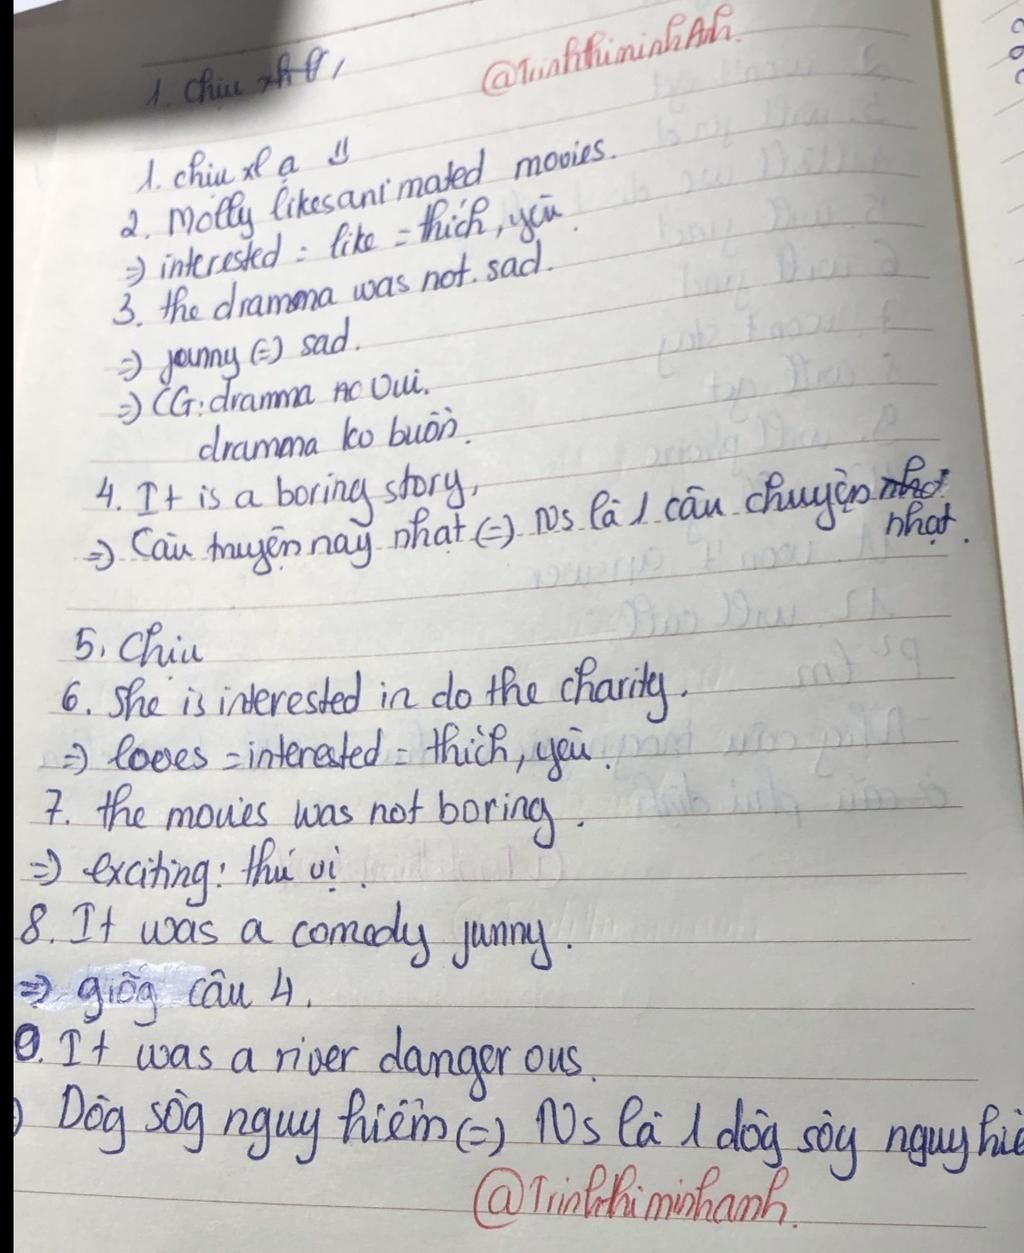 @TrinhthiminhAnh.
1. Chịu
1. chịu xl ạ
2. Molly likes animated movies.
=> interested = like = thích, yêu.
3. the dramma was not sad.
=> funny (=) sad.
=> CG: dramma vui.
dramma ko buồn.
4. It is a boring story,
=> Câu truyện này nhạt (=) Ns là 1 câu chuyện
nhạt.
5. Chịu
6. She is interested in do the charity.
=> loves = interested = thích, yêu.
7. the movies was not boring.
=> exciting: thú vị.
8. It was a comedy funny.
=> giõg câu 4.
9. It was a river dangerous.
Dòg sôg nguy hiểm (=) Ns là 1 dòg sôg nguy
@Trinhthiminhanh.